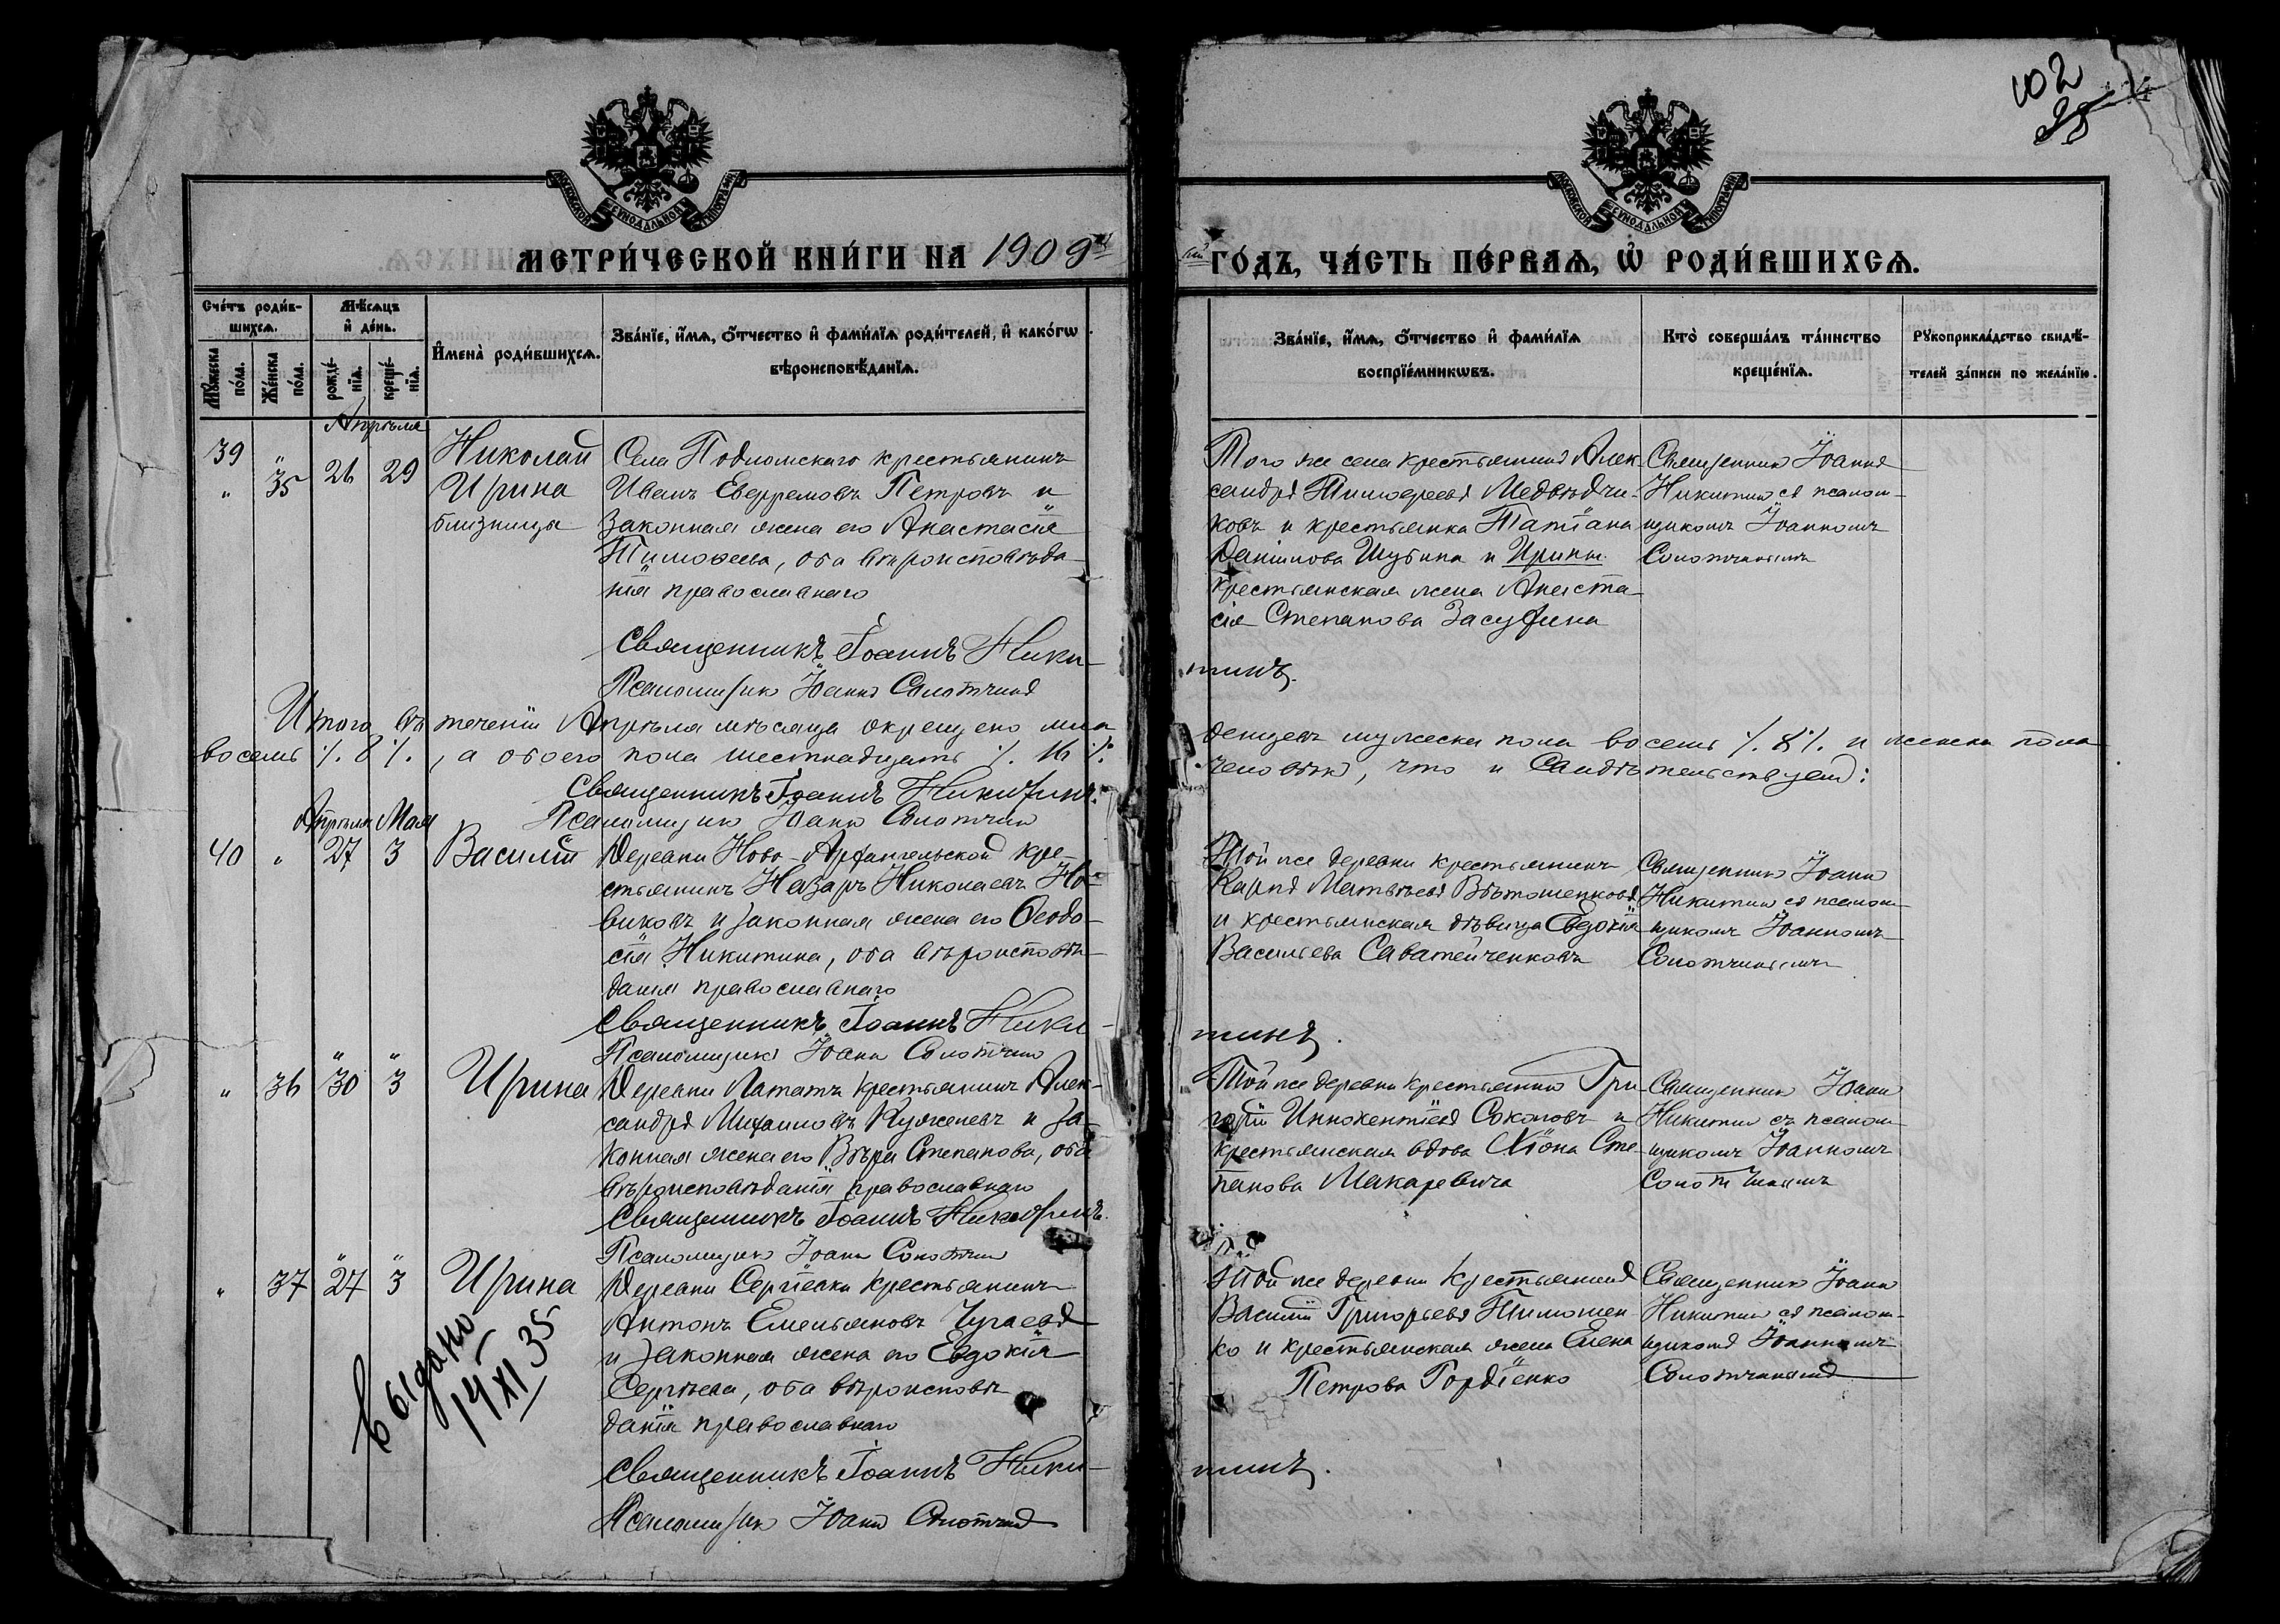 102
МОСКОВСКОЙ СѴНОДАЛЬНОЙ ТИПОГРАФІИ
МОСКОВСКОЙ СѴНОДАЛЬНОЙ ТИПОГРАФІИ
МЕТРИ́ЧЕСКОЙ КНИ́ГИ НА 1909й
ГО́ДЪ, ЧА́СТЬ ПЕ́РВАѦ, Ѡ҆ РОДИ́ВШИХСѦ.
Сче́тъ роди́в-
шихсѧ.
Мѣ́сѧцъ
и҆ де́нь.
И҆мена̀ роди́вшихсѧ.
Зва́нїе, и҆́мѧ, ѻ҆́тчество и҆ фами́лїѧ роди́телей, и҆ како́гѡ
вѣроисповѣ́данїѧ.
Мꙋ́жеска
по́ла.
Же́нска
по́ла.
рожде́-
нїѧ.
креще́-
нїѧ.
Зва́нїе, и҆́мѧ, ѻ҆́тчество и҆ фами́лїѧ
воспрїе́мникѡвъ.
Кто̀ соверша́лъ та́инство
креще́нїѧ.
Рꙋкоприкла́дство свидѣ́-
телей за́писи по жела́нїю.
Апрѣля
39 " 26 29 Николай Села Подломскаго крестьянинъ
" 35 Ирина Иванъ Евфремовъ Петровъ и
близнецы законная жена его Анастасія
Тимоѳеева, оба вѣроисповѣда-
нія православнаго
Того же села крестьянинъ Алек-
сандръ Тимоѳеевъ Медвѣдчи-
ковъ и крестьянка Татіана
Данилова Шубина и Ирины
крестьянская жена Анаста-
сія Степанова Засухина
Священникъ Іоаннъ
Никитинъ съ псалом-
щикомъ Іоанномъ
Солотчинымъ
Священникъ Іоаннъ Ники-
тинъ.
Псаломщикъ Іоаннъ Солотчинъ
Итого въ теченіи Апрѣля мѣсяца окрещено мла
денцевъ мужеска пола восемь ·/. 8 ·/. и женска пола
восемь ·/. 8 ·/., а обоего пола шестнадцать ·/. 16 ·/.
человѣкъ, что и Свидѣтельствуемъ:
Священникъ Іоаннъ Никитинъ.
Псаломщикъ Іоаннъ Солотчин
Апрѣля Мая
40 " 27 3 Василій Деревни Ново-Архангельской кре-
стьянинъ Назаръ Николаевъ Но-
виковъ и законная жена его Ѳеодо-
сія Никитина, оба вѣроисповѣ-
данія православнаго
Той же деревни крестьянинъ
Карпъ Матвѣевъ Вѣтошенковъ
и крестьянская дѣвица Евдокія
Васильева Саватейченковъ
Священникъ Іоаннъ
Никитинъ съ псалом-
щикомъ Іоанномъ
Солотчинымъ
Священникъ Іоаннъ Ники-
тинъ.
Псаломщикъ Іоаннъ Солотчин
" 36 " 30 " 3 Ирина Деревни Лататъ крестьянинъ Алек-
сандръ Михаиловъ Кужелевъ и за-
конная жена его Вѣра Степанова, оба
вѣроисповѣданія православнаго
Той же деревни крестьянинъ Гри-
горій Иннокентіевъ Соколовъ и
крестьянская вдова Хіона Сте-
панова Макаревича
Священникъ Іоаннъ
Никитинъ съ псалом-
щикомъ Іоанномъ
Солотчинымъ
Священникъ Іоаннъ Никитинъ.
Псаломщикъ Іоаннъ Солотчин
" 37 " 27 " 3 Ирина Деревни Сергіевки крестьянинъ
Антонъ Емельяновъ Чугаевъ
и законная жена его Евдокія
Сергѣева, оба вѣроисповѣ-
данія православнаго
Той же деревни крестьянинъ
Василій Григорьевъ Тимошен
ко и крестьянская жена Елена
Петрова Гордіенко
Священникъ Іоаннъ
Никитинъ съ псалом-
щикомъ Іоанномъ
Солотчинымъ
выдано
14 XI 35
Священникъ Іоаннъ Ники-
тинъ.
Псаломщикъ Іоаннъ Солотчинъ